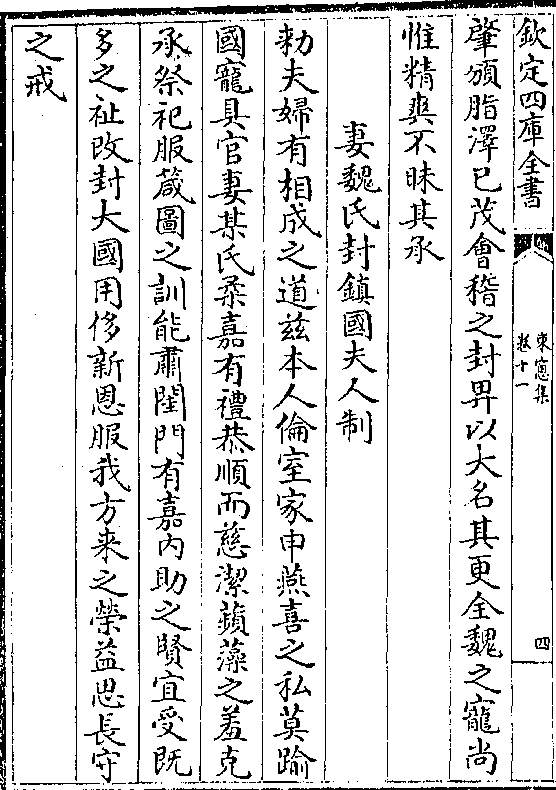 欽定四庫全書
東窻集
卷十一
四
肇頒脂澤已茂會稽之封畀以大名其更全魏之寵尚
惟精爽不昧其承
妻魏氏封鎮國夫人制
勑夫婦有相成之道兹本人倫室家申燕喜之私莫踰
國寵具官妻某氏柔嘉有禮恭順而慈潔蘋藻之羞克
承祭祀服箴圖之訓能肅閨門有嘉内助之賢宜受既
多之祉改封大國用侈新恩服我方来之榮益思長守
之戒